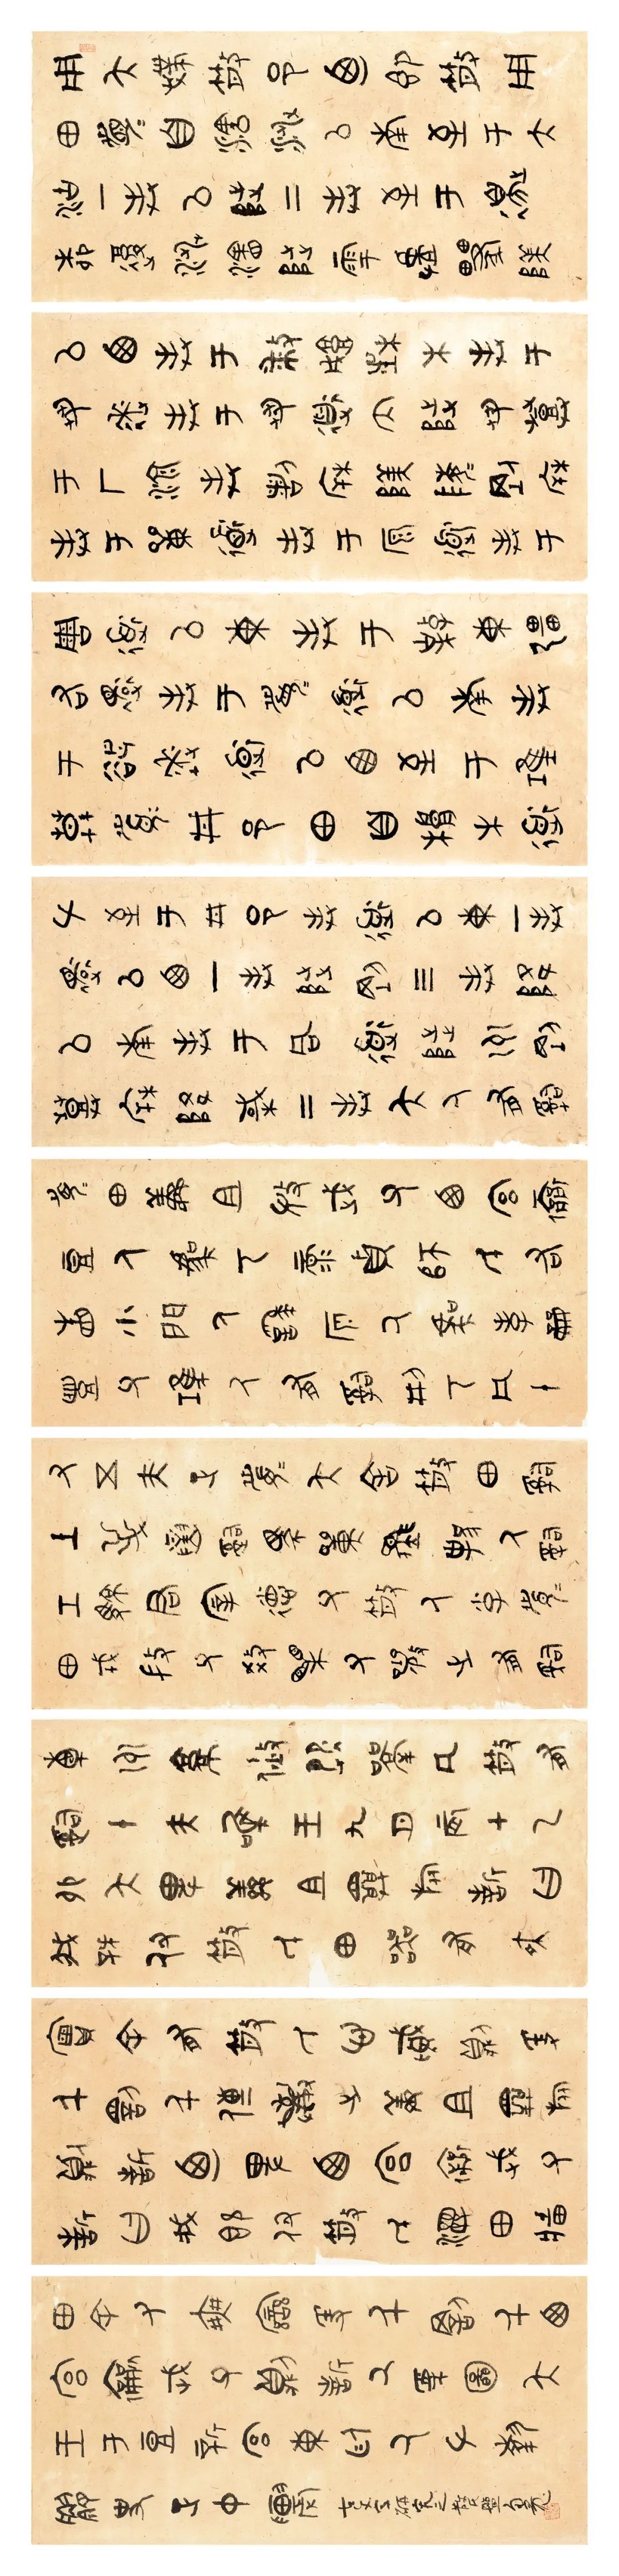 用夨撲散邑廼即散用
田眉自瀗涉以南至于大
沽一封以陟二封至于邊
柳復涉瀗陟雩
以西封于播城楮木封于
芻逨封于芻道內陟芻登
于厂湶封諸㭫陵剛㭫
封于單道封于原道封于
周道以東封于東疆
右還封于眉道以南封
于逨道以西至于
莫眉井邑田自根木道
左至于井邑封道以東一封
還以西一封陟剛三封降
以南封于同道陟州剛
登㭫降棫二封夨人有司
眉田鮮且微武父西宮襄
豆人虞丂彔貞師氏右眚
小門人繇原人虞艿淮司工虎孝
豐父唯人有司刑丂凡十
又五夫正眉夨舍散田司
土逆寅司馬單人司
工君宰德父散人小子眉
田戎微父教父襄之有司
橐州就焂從凡散有
司十夫唯王九月辰才乙
卯夨卑鮮且旅誓曰
我既付散氏田器有爽
實余有散氏心賊則爰
千罰千傳棄之鮮且旅
則誓廼卑西宮襄武父
誓曰我既付散氏濕田畛
田余有爽變爰千罰千西
宮襄武父則誓厥受圖夨
王于豆新宮東廷厥左執
史正中農